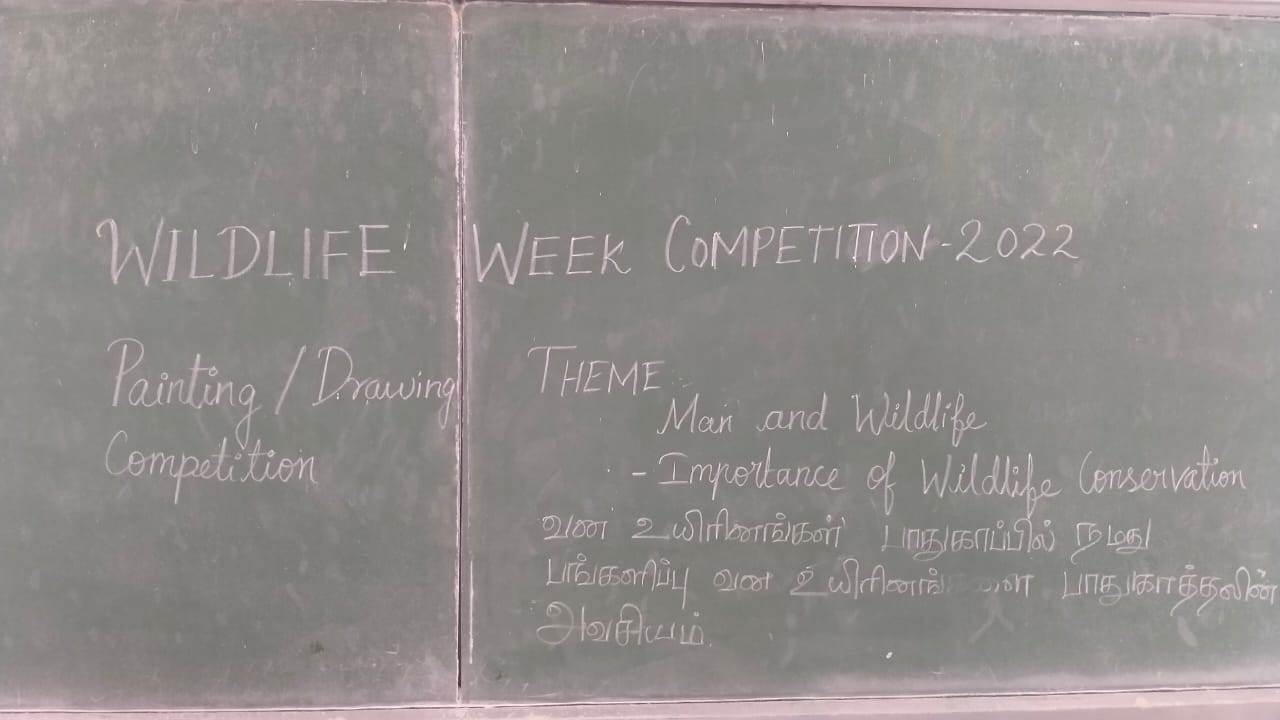 WILDLIFE WEEK COMPETITION-2022
Painting / Drawing
Competition
THEME
Man and Wildlife
- Importance of Wildlife Conservation
வன உயிரினங்கள் பாதுகாப்பில் நமது
பங்களிப்பு வன உயிரினங்களை பாதுகாத்தலின்
அவசியம்.